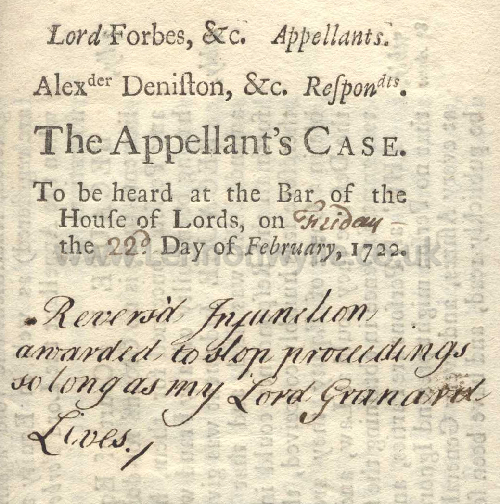 Lord Forbes, &c. Appellants.
Alexder Deniſton, &c. Reſpondts.
The Appellant's CASE.
To be heard at the Bar of the
Houſe of Lords, on Friday
the 22d Day of February, 1722.
Revers'd Injunction
awarded to stop proceedings
so long as my Lord Granard
Lives.